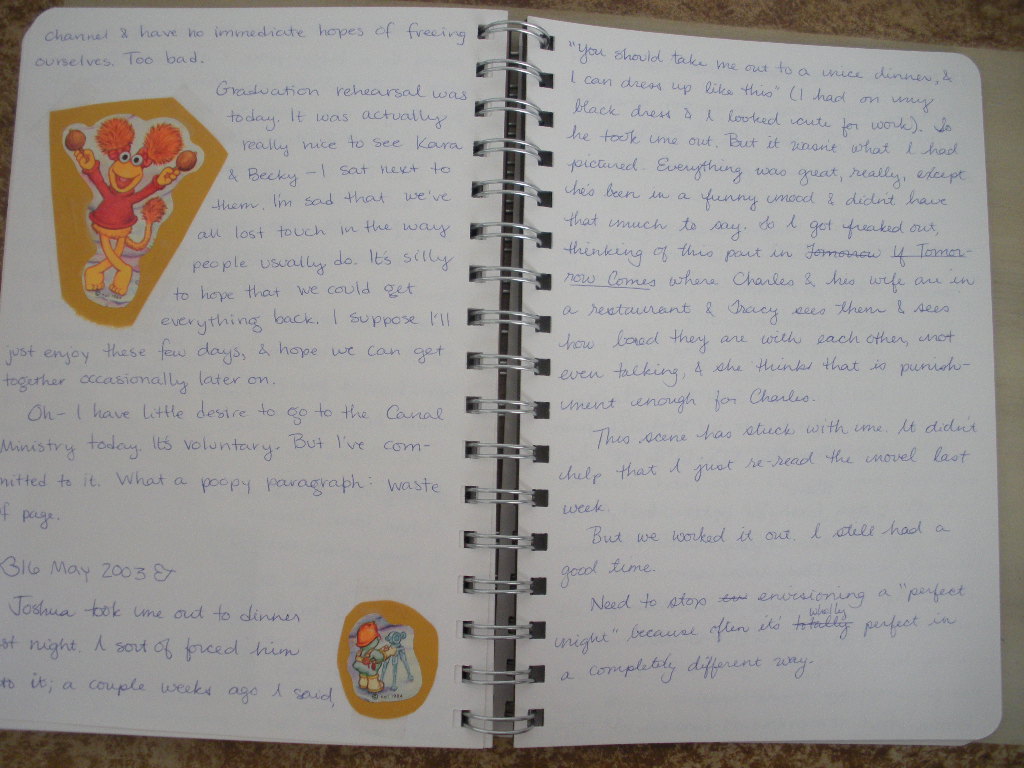 channel & have no immediate hopes of freeing
ourselves. Too bad.
Graduation rehearsal was
today. It was actually
really nice to see Kara
& Becky - I sat next to
them. I'm sad that we've
all lost touch in the way
people usually do. It's silly
to hope that we could get
everything back. I suppose I'll
just enjoy these few days, & hope we can get
together occasionally later on.
Oh- I have little desire to go to the Canal
Ministry today. It's voluntary. But I've com-
mitted to it. What a poopy paragraph: waste
of page.
16 May 2003
Joshua took me out to dinner
st night. I sort of forced him
to it; a couple weeks ago I said,
© HAI 1984
"You should take me out to a nice dinner, &
I can dress up like this" (I had on my
black dress & I looked cute for work). So
he took me out. But it wasn't what I had
pictured. Everything was great, really, except
he's been in a funny mood & didn't have
that much to say. So I got freaked out,
thinking of this part in Tomorrow If Tomor-
row Comes where Charles & his wife are in
a restaurant & Tracy sees them & sees
how bored they are with each other, not
even talking, & she thinks that is punish-
ment enough for Charles.
This scene has stuck with me. It didn't
help that I just re-read the novel last
week.
But we worked it out. I still had a
good time.
Need to stop en envisioning a "perfect
wholly
night" because often it's totally perfect in
a completely different way.